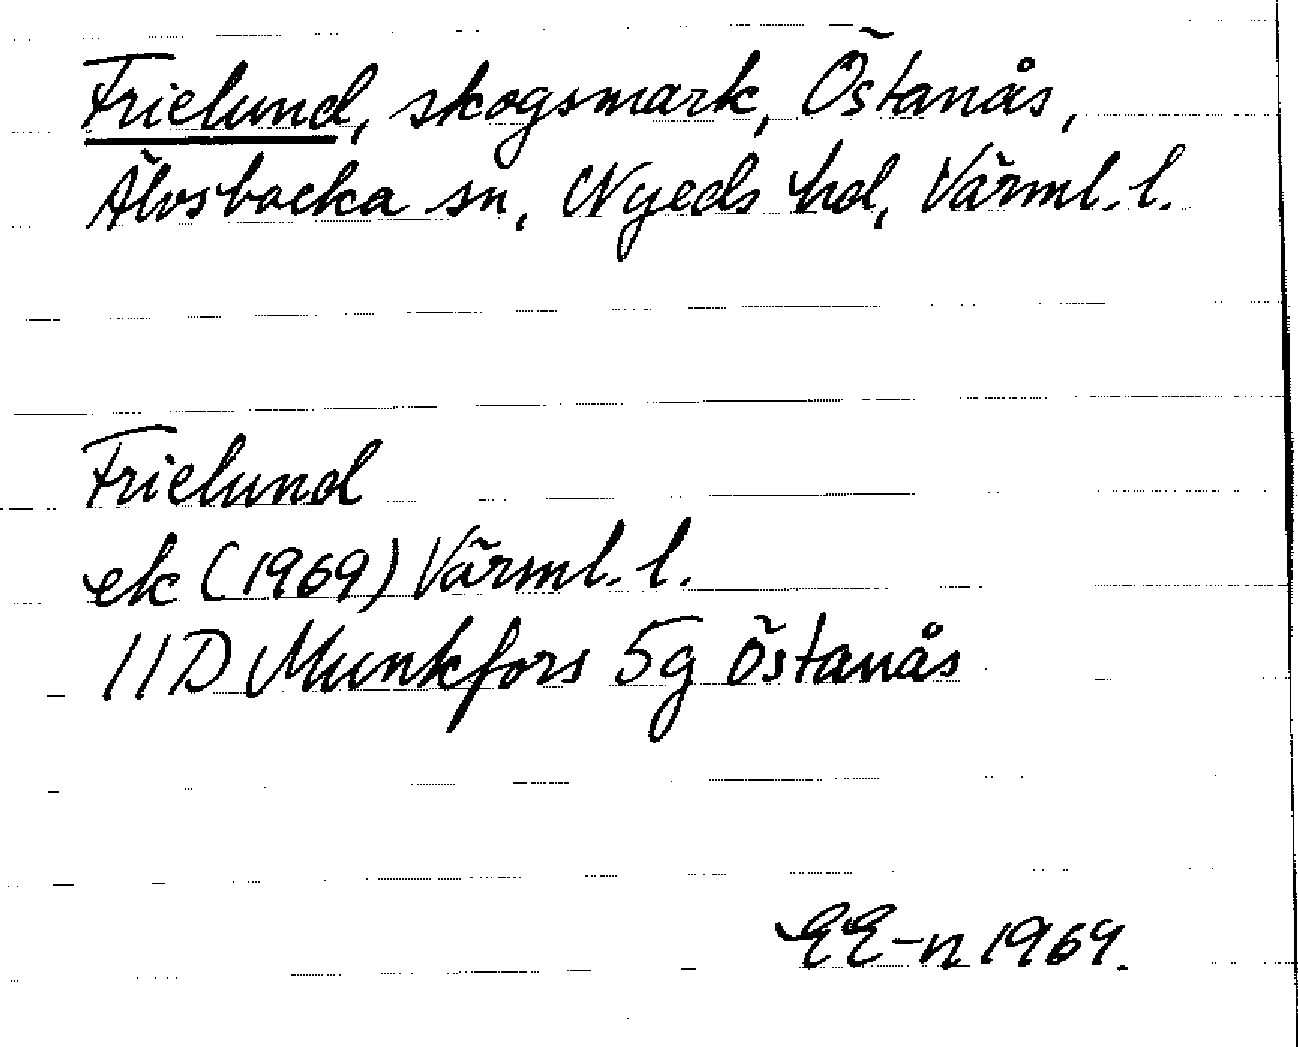 Frielund, skogsmark, Östanås,
Älvsbacka sn, Nyeds hd, Värml. l.
Frielund
ek (1969) Värml. l.
11D Munkfors 5g Östanås
EE-n 1969.